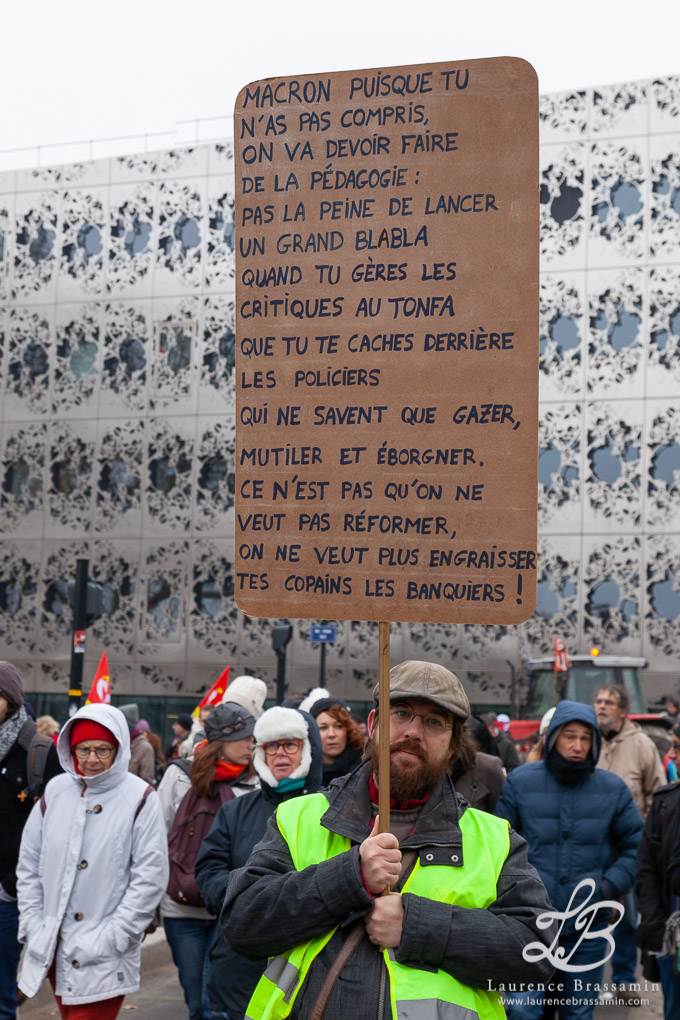 MACRON PUISQUE TU
N'AS PAS COMPRIS,
ON VA DEVOIR FAIRE
DE LA PÉDAGOGIE :
PAS LA PEINE DE LANCER
UN GRAND BLABLA
QUAND TU GÈRES LES
CRITIQUES AU TONFA
QUE TU TE CACHES DERRIÈRE
LES POLICIERS
QUI NE SAVENT QUE GAZER,
MUTILER ET ÉBORGNER.
CE N'EST PAS QU'ON NE
VEUT PAS RÉFORMER,
ON NE VEUT PLUS ENGRAISSER
TES COPAINS LES BANQUIERS !
LB
LAURENCE BRASSAMIN
www.laurencebrassamin.com